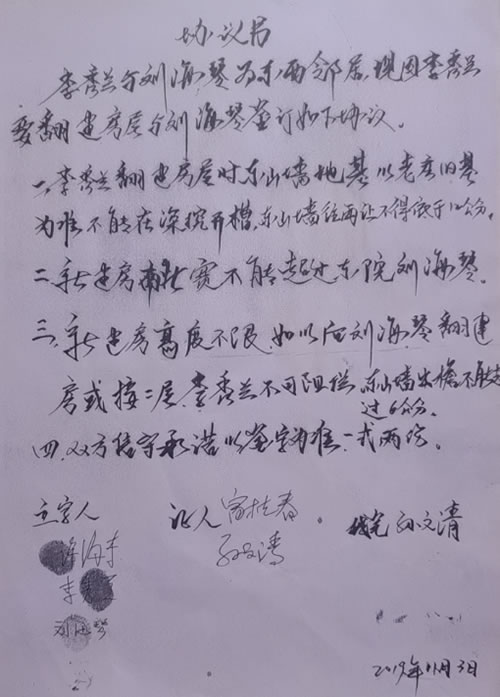 协议书
李秀兰与刘海琴为东西邻居,现因李秀兰
要翻建房屋与刘海琴签订如下协议。
一、李秀兰翻建房屋时东山墙地基以老房旧基
为准,不能在深挖开槽,东山墙往西让不得低于12公分。
二、新建房南北宽不能超过东院刘海琴。
三、新建房高度不限,如以后刘海琴翻建
房或接二层,李秀兰不可阻拦,东山墙出檐不能超
过6公分。
四、双方信守承诺以签字为准,一式两份。
立字人 证人 桂春 代笔 孙文清
海
李
刘海琴
2019年11月3日